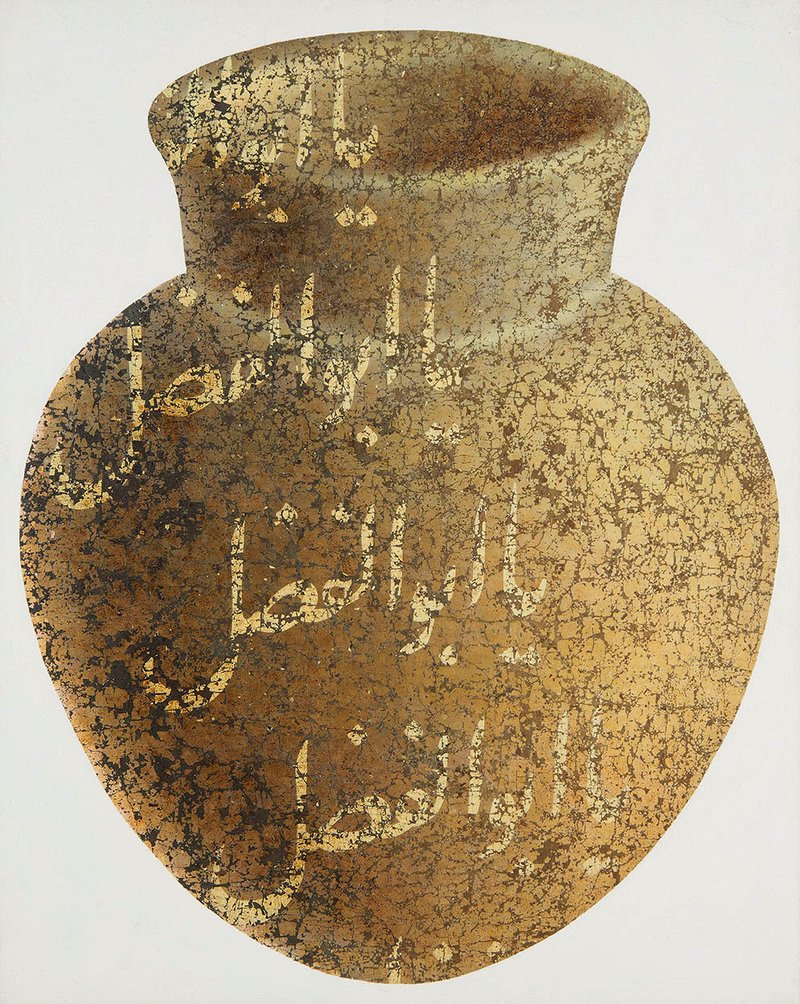 یا ابو
یا ابوالفضل
یا ابوالفضل
یا ابوالفضل